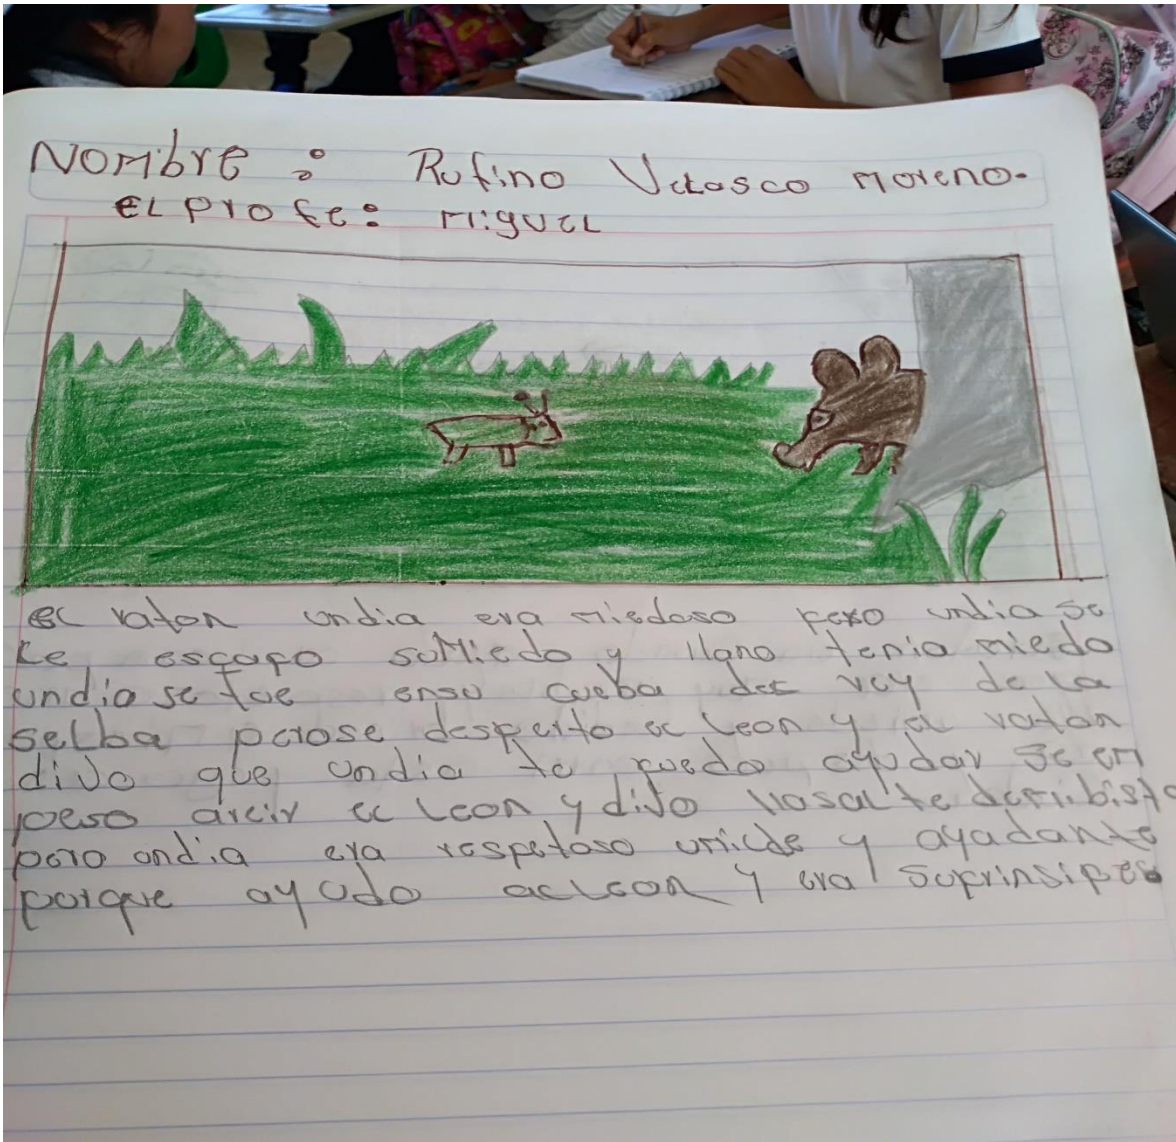 Nombre : Rufino Velasco Moreno.
el profe: Miguel
el raton undia era miedoso pero undia se
le escapo suMiedo y llano tenia miedo
undia se fue ensu cueba del rey de la
selba perose desperto el leon y el raton
diJo que undia te puedo ayudar se em
peso areir el leon y diJo
pero undia era respetoso umilde y ayudante
porque ayudo aeleon y era suprinsipe